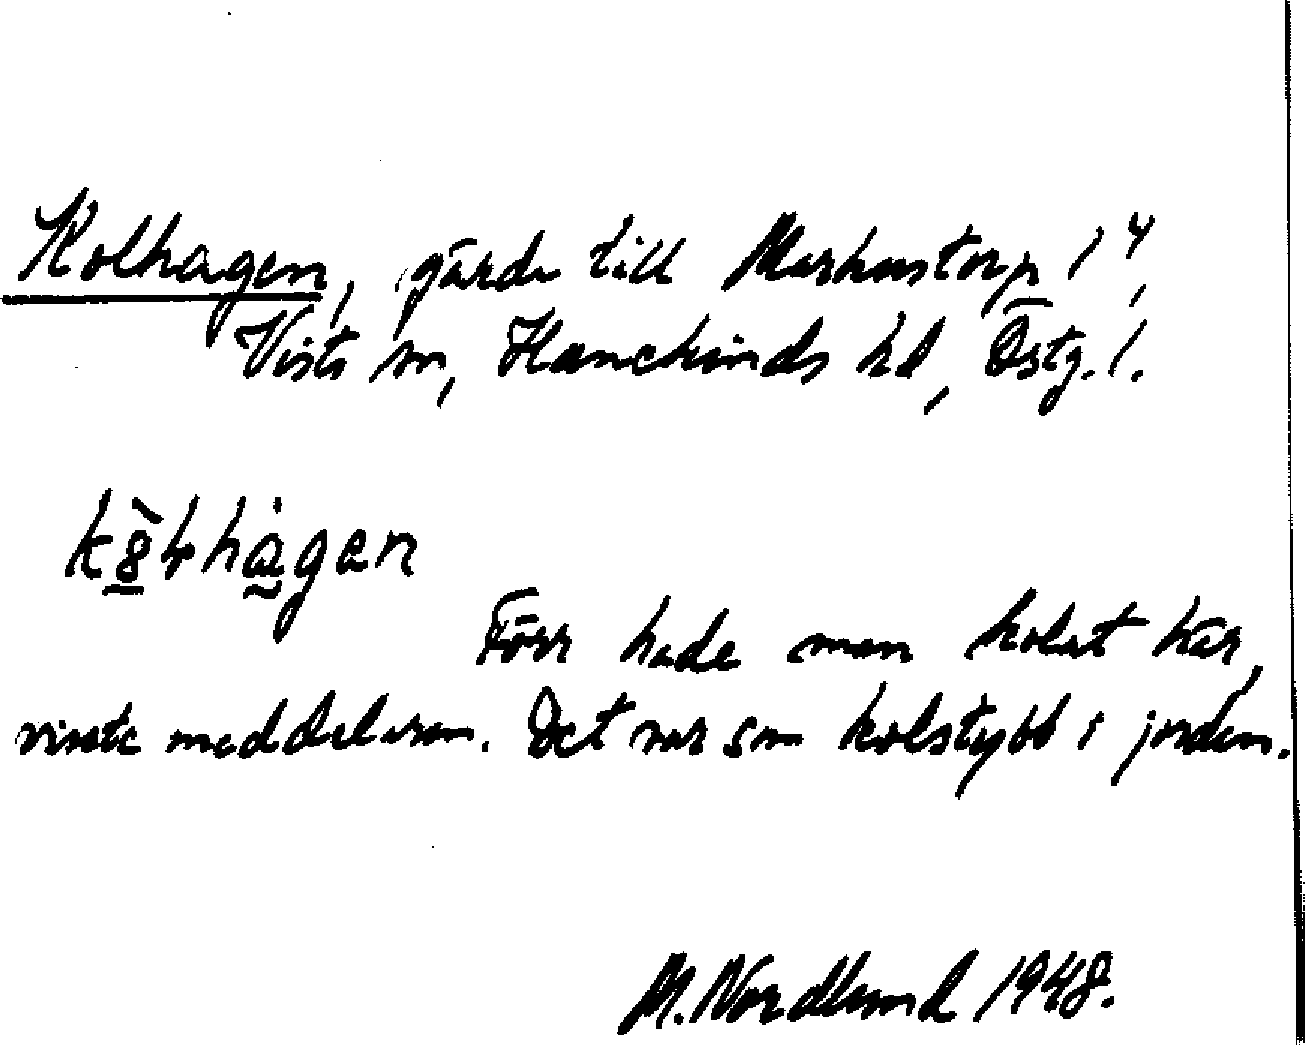 Kolhagen, gärde till Markustorp 1⁴,
Vists sn, Hanekinds hd, Östg. l.
kö̀ɫhágen
Förr hade man kolat här,
visste meddelaren. Det var som kolstybb i jorden.
M. Nordlund 1948.